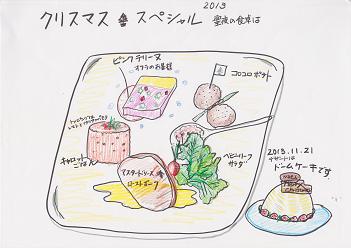 2013
クリスマス スペシャル 聖夜の食卓は
ピンクテリーヌ
オクラのお星様
コロコロポテト
キャロット
ごはん
マスタードソース
ローストポーク
ベビーリーフ
サラダ
2013.11.21
デザートは
ドームケーキです